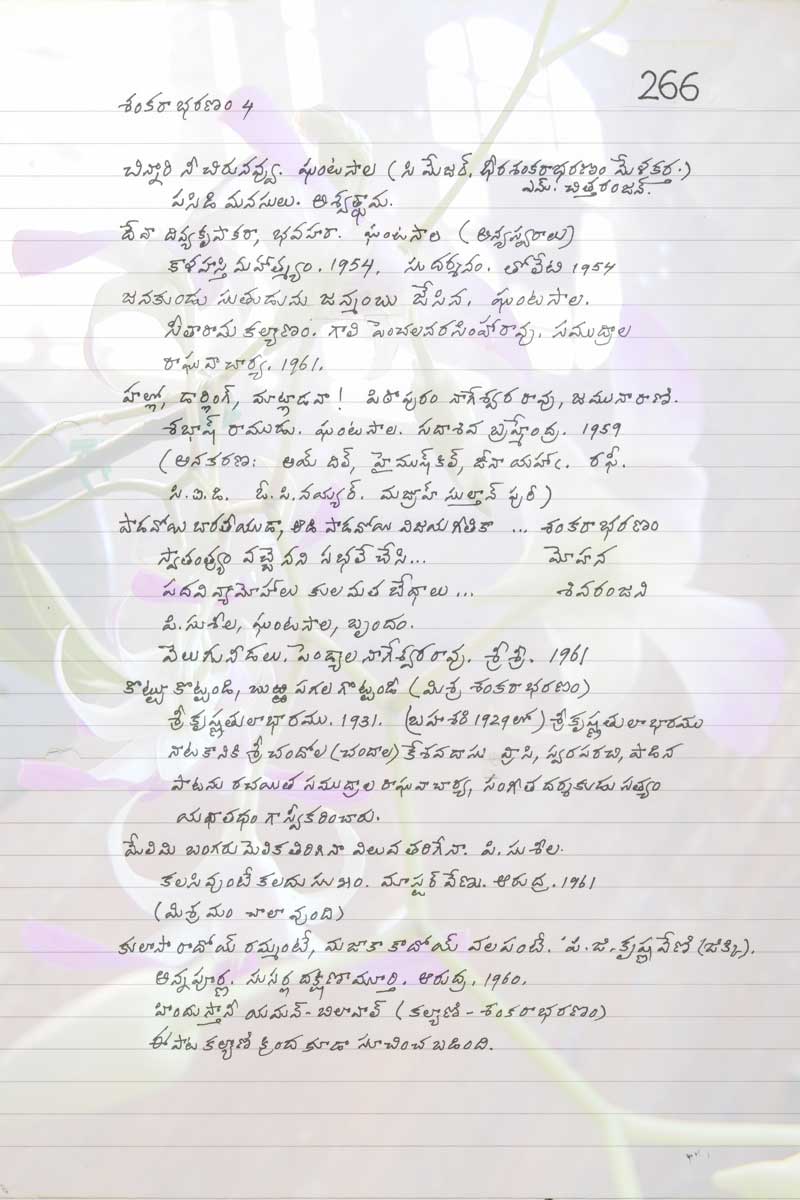 266
శంకరాభరణం 4
చిన్నారి నీ చిరునవ్వు. ఘంటసాల (సి మేజర్, ధీరశంకరాభరణం మేళకర్త.)
ఎమ్. చిత్తరంజన్.
పసిడి మనసులు. అశ్వత్థామ.
దేవా దివ్యకృపాకరా, భవహరా. ఘంటసాల (అన్యస్వరాలు)
కాళహస్తి మహాత్మ్యం. 1954. సుదర్శనం. తోలేటి 1954
జనకుండు సుతుడును జన్మంబు జేసిన. ఘంటసాల.
సీతారామ కల్యాణం. గాలి పెంచలనరసింహారావు. సముద్రాల
రాఘవాచార్య. 1961.
హల్లో, డార్లింగ్, మాట్లాడవా! పిఠాపురం నాగేశ్వరరావు, జమునారాణి.
శభాష్ రాముడు. ఘంటసాల. సదాశివ బ్రహ్మేంద్ర. 1959
(అనకరణ: అయ్ దిల్, హై ముష్కిల్, జీనా యహాఁ. రఫీ.
సి.ఐ.డి. ఓ.పి.నయ్యర్. మజ్రూహ్ సుల్తాన్ పురీ)
పాడవోయి భారతీయుడా, ఆడి పాడవోయి విజయగీతికా ... శంకరాభరణం
స్వాతంత్ర్యం వచ్చెనని సభలే చేసి... మోహన
పదవీ వ్యామోహాలు కులమత భేధాలు ... శివరంజని
పి.సుశీల, ఘంటసాల, బృందం.
వెలుగునీడలు. పెండ్యాల నాగేశ్వరరావు. శ్రీశ్రీ. 1961
కొట్టూ కొట్టండి, బుఱ్ఱ పగల గొట్టండి (మిశ్ర శంకరాభరణం)
శ్రీకృష్ణతులాభారము. 1931. 1929లో) శ్రీకృష్ణతులాభారము
నాటకానికి శ్రీ చందోల (చందాల) కేశవదాసు వ్రాసి, స్వరపరచి, పాడిన
పాటను రచయిత సముద్రాల రాఘవాచార్య, సంగీత దర్శకుడు సత్యం
యథాతథం గా స్వీకరించారు.
మేలిమి బంగరు మెలిక తిరిగినా విలువ తరిగేనా. పి.సుశీల.
కలసివుంటే కలదు సుఖం. మాస్టర్ వేణు. ఆరుద్ర. 1961
(మిశ్రమం చాలా వుంది)
కులాసా రాదోయ్ రమ్మంటే, మజాకా కాదోయ్ వలపంటే. పి.జి.కృష్ణవేణి (జిక్కి).
అన్నపూర్ణ. సుసర్ల దక్షిణామూర్తి. ఆరుద్ర. 1960.
హిందుస్తానీ యమన్-బిలావల్ (కల్యాణి - శంకరాభరణం)
ఈ పాట కల్యాణి క్రింద కూడా సూచించ బడింది.